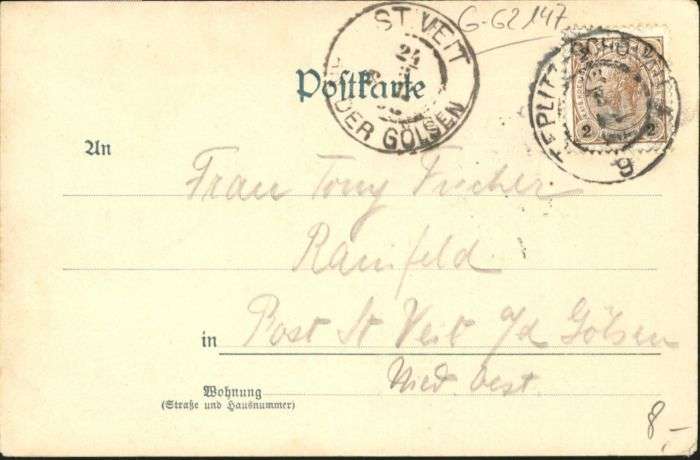 G-62147
ST. VEIT
24
DER GÖLSEN
TEPLITZ SCHÖNAU
9
2 2
Postkarte
An
Frau Tony Fischer
Rainfeld
in Post St Veit a/d Gölsen
Nied. Oest.
Wohnung
(Straße und Hausnummer)
8,-